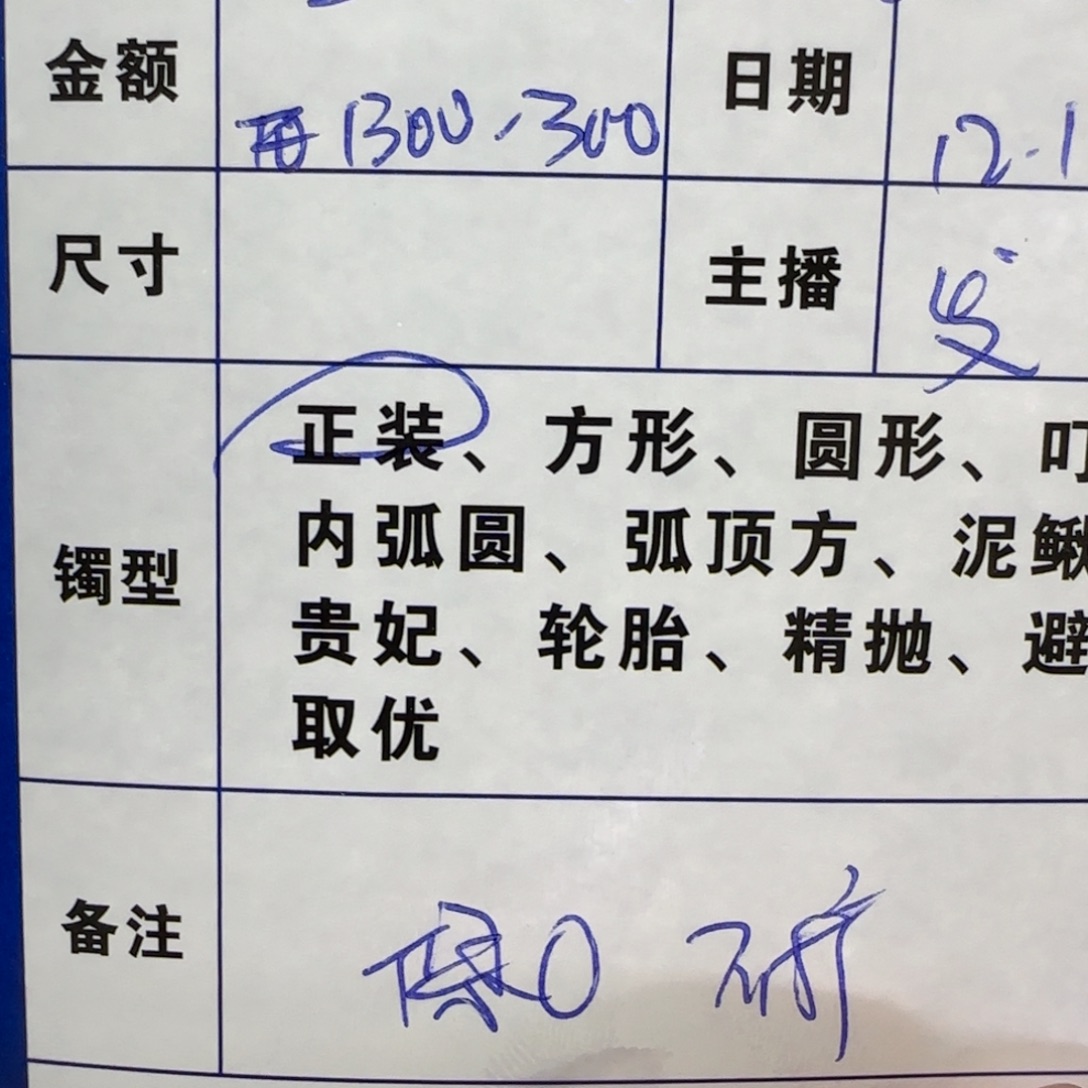 金额 1300 300 日期 12.1
尺寸 主播
镯型 正装、方形、圆形、叮
内弧圆、弧顶方、泥鳅
贵妃、轮胎、精抛、避
取优
备注